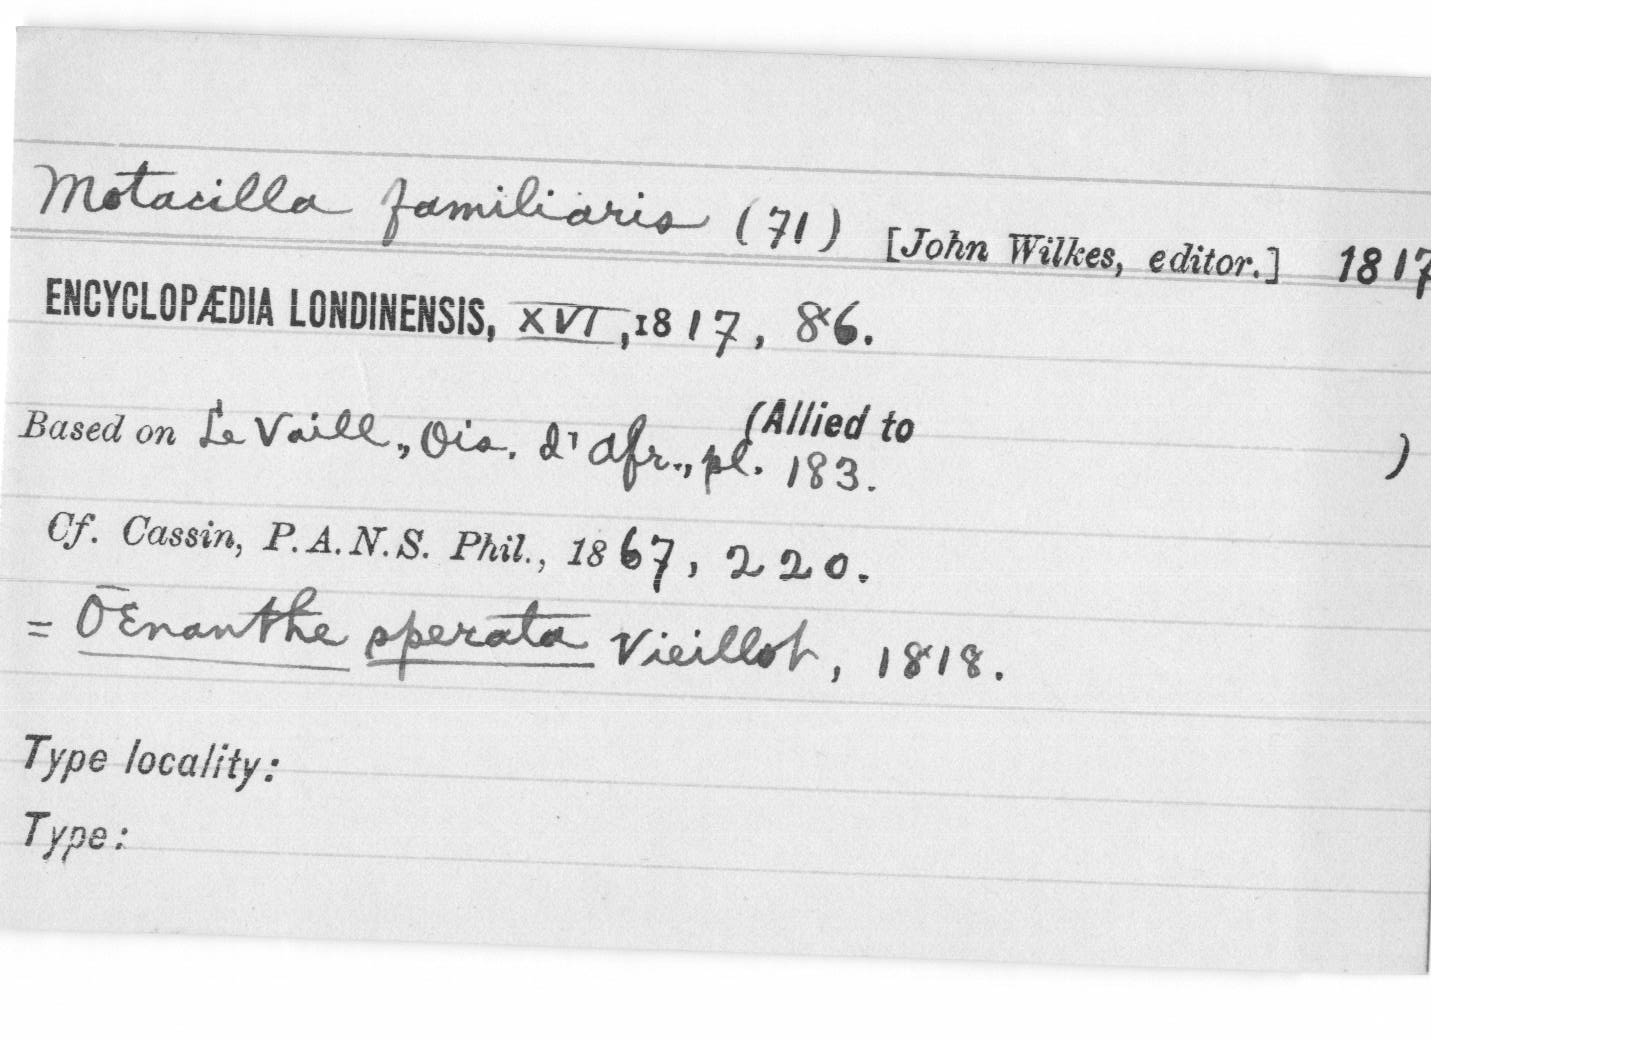 Motacilla familiaris (71) [John Wilkes, editor.] 1817
ENCYCLOPÆDIA LONDINENSIS, XVI, 1817, 86.
(Allied to )
Based on Le Vaill., Ois. d'Afr., pl. 183.
Cf. Cassin, P.A.N.S. Phil., 1867, 220.
= OEnanthe sperata Vieillot, 1818.
Type locality:
Type: